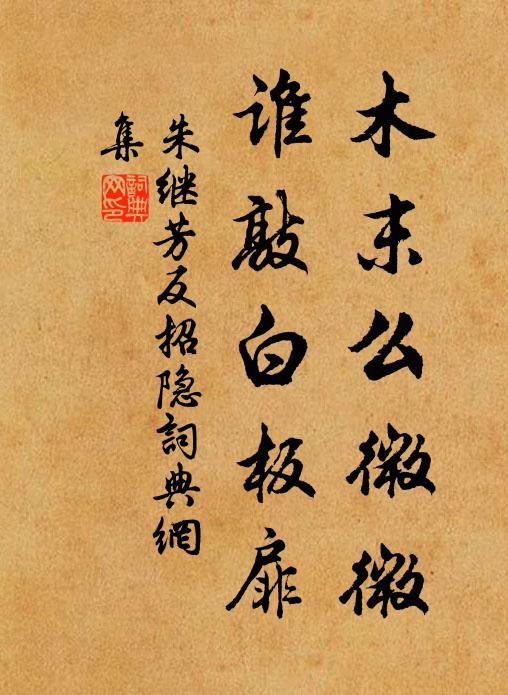 木末么微微
谁敲白板扉
朱继芳反招隐詞典網
集
詞典
网印